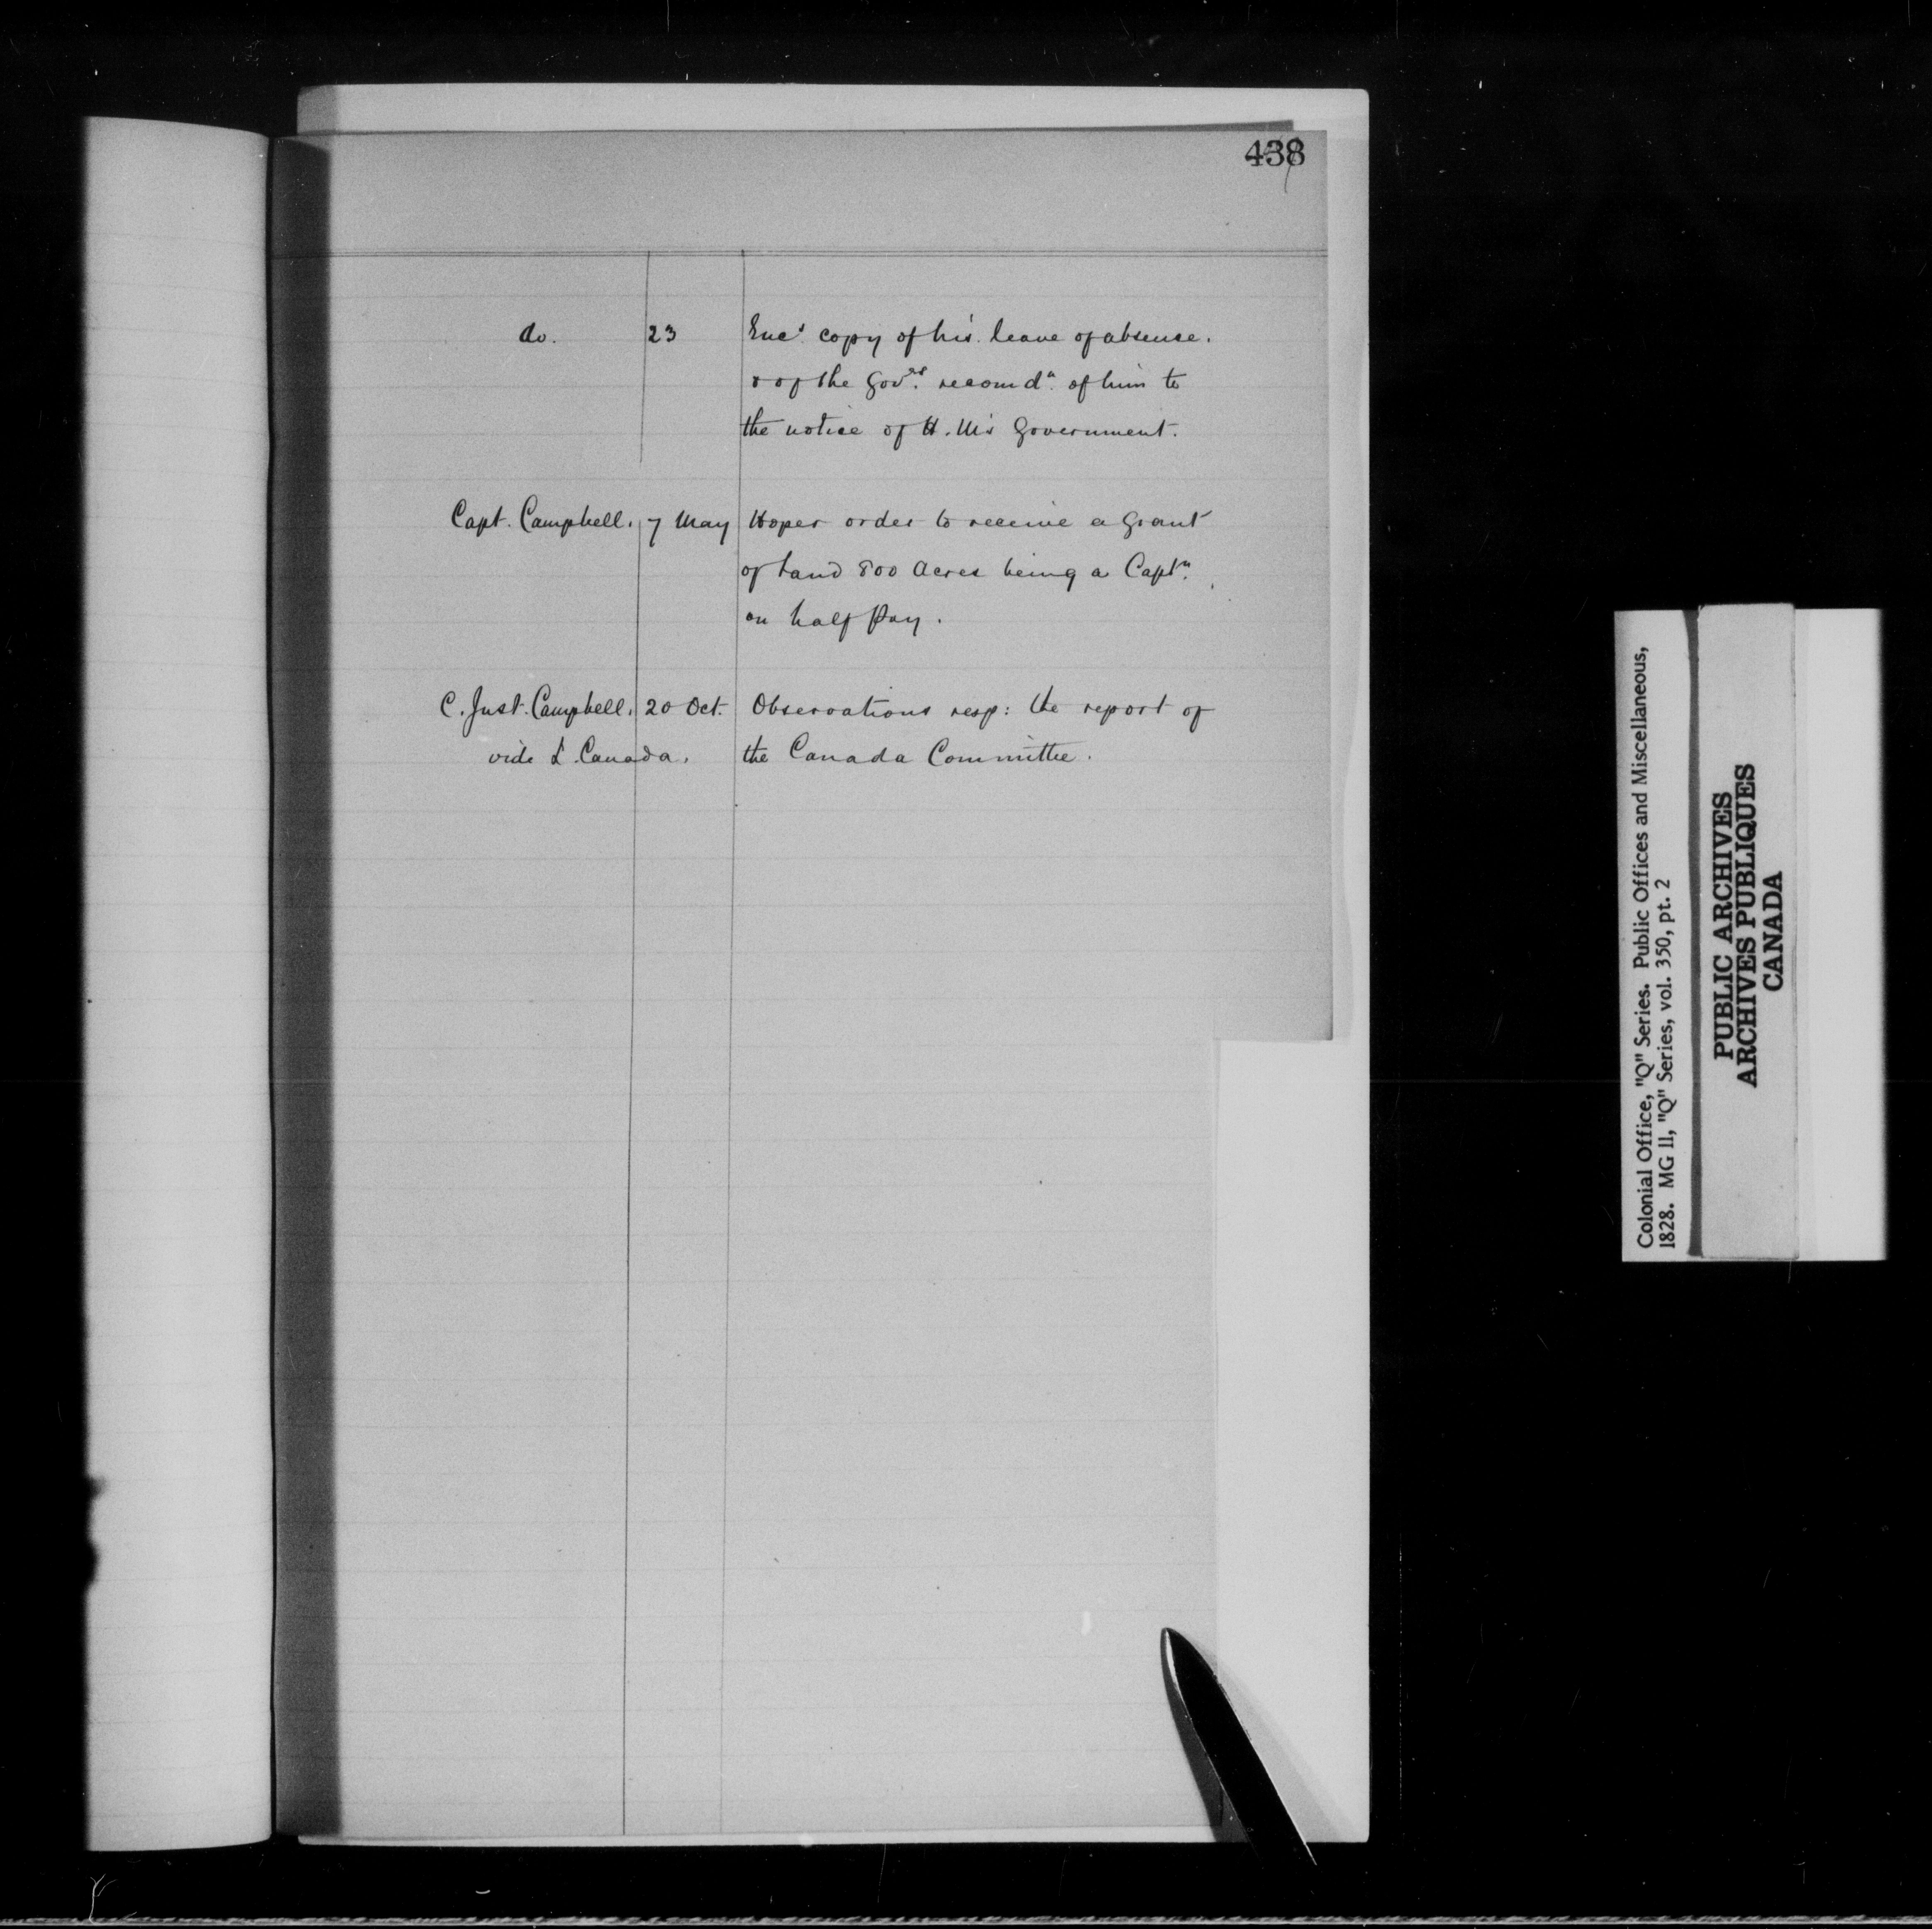 438
do. 23 Encs. copy of his leave of absense.
& of the Govrs. recomdn. of him to
the notice of H. M's Government.
Capt. Campbell. 7 May Hopes order to receive a grant
of Land 800 Acres being a Captn.
on half Pay.
C. Just. Campbell. 20 Oct. Observations resp: the report of
vide L. Canada. the Canada Committee.
Colonial Office, "Q" Series. Public Offices and Miscellaneous,
1828. MG 11, "Q" Series, vol. 350, pt. 2
PUBLIC ARCHIVES
ARCHIVES PUBLIQUES
CANADA